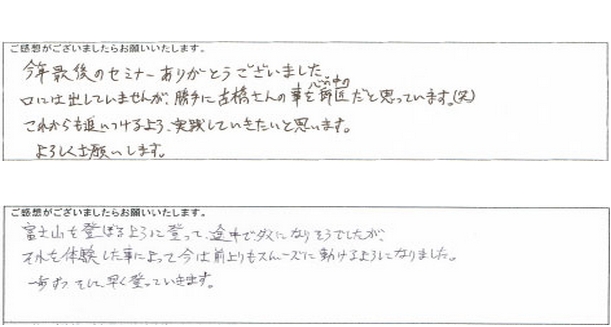 ご感想がございましたらお願いいたします。
今年最後のセミナーありがとうございました。
心の中の
口には出していませんが、勝手に古橋さんの事を師匠だと思っています。(笑)
これからも追いつけるよう、実践していきたいと思います。
よろしくお願いします。
ご感想がございましたらお願いいたします。
富士山を登ぼるように登って、途中でダメになりそうでしたが、
それを体験した事によって今は前よりもスムーズに動けるようになりました。
一歩ずつ そして、早く登っていきます。